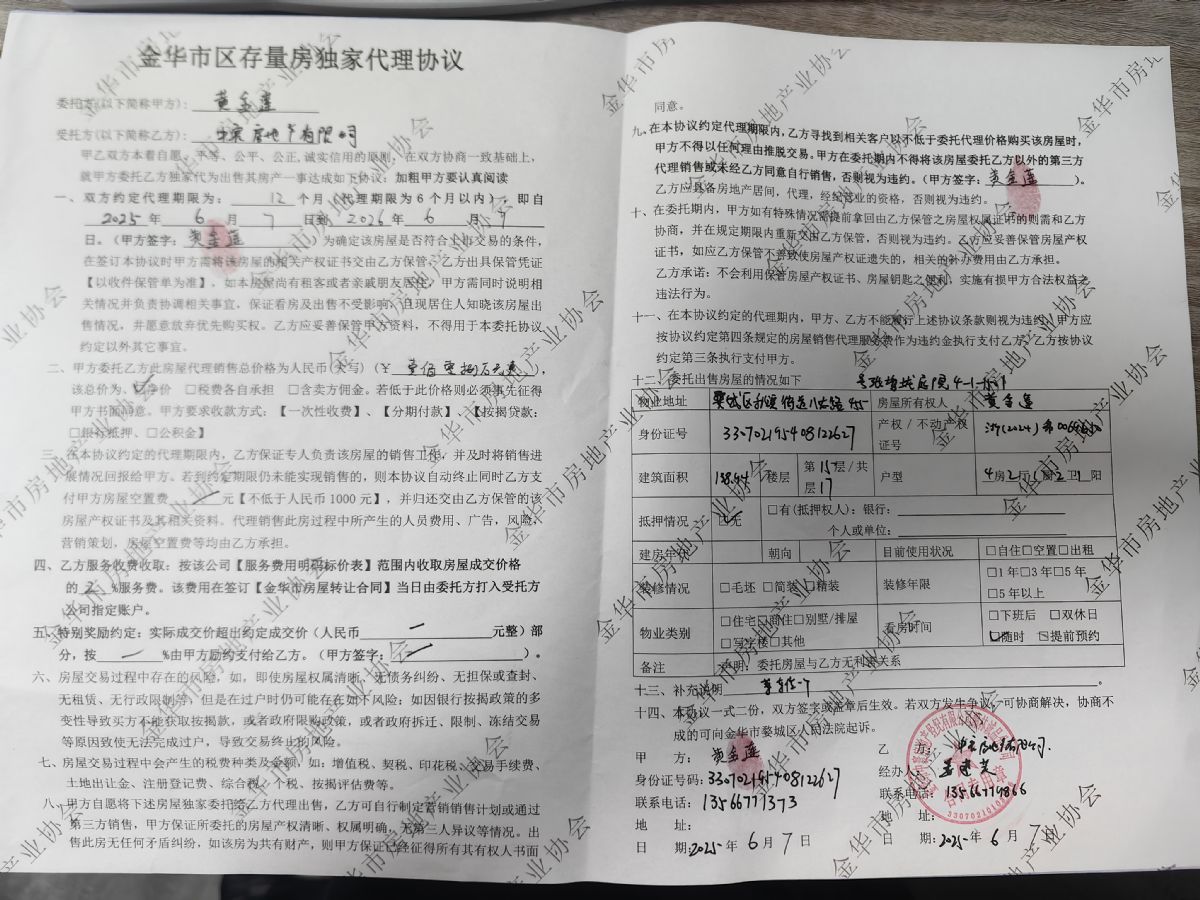 金华市区存量房独家代理协议
委托方(以下简称甲方)：黄金莲
受托方(以下简称乙方)：房地产有限公司
甲乙双方本着自愿、平等、公平、公正，诚实信用的原则，在双方协商一致基础上，
就甲方委托乙方独家代为出售其房产一事达成如下协议，加粗甲方要认真阅读
一、双方约定代理期限为：12 个月（代理期限为6个月以内），即自
2025 年 6 月 7 日到 2026 年 6 月
日。（甲方签字：黄金莲 为确定该房屋是否符合上市交易的条件，
在签订本协议时甲方需将该房屋的相关产权证书交由乙方保管，乙方出具保管凭证
【以收件保管单为准】，如本房屋尚有租客或者亲戚朋友居住，甲方需同时说明相
关情况并负责协调相关事宜，保证看房及出售不受影响，且现居住人知晓该房屋出
售情况，并愿意放弃优先购买权。乙方应妥善保管甲方资料，不得用于本委托协议
约定以外其它事宜。
二、甲方委托乙方此房屋代理销售总价格为人民币（大写）（￥ ），
该总价为：净价 □税费各自承担 □含卖方佣金。若低于此价格则必须事先征得
甲方书面同意。甲方要求收款方式：【一次性收费】、【分期付款】、【按揭贷款：
□银行抵押、□公积金】
三、在本协议约定的代理期限内，乙方保证专人负责该房屋的销售工作，并及时将销售进
展情况回报给甲方。若到约定期限仍未能实现销售的，则本协议自动终止同时乙方支
付甲方房屋空置费 一 元【不低于人民币1000元】，并归还交由乙方保管的该
房屋产权证书及其相关资料。代理销售此房过程中所产生的人员费用、广告，风险，
营销策划，房屋空置费等均由乙方承担。
四、乙方服务收费收取：按该公司【服务费用明码标价表】范围内收取房屋成交价格
的 2 %服务费。该费用在签订【金华市房屋转让合同】当日由委托方打入受托方
公司指定账户。
五、特别奖励约定：实际成交价超出约定成交价（人民币 一 元整）部
分，按 一 %由甲方励约支付给乙方。（甲方签字： ）。
六、房屋交易过程中存在的风险，如，即使房屋权属清晰、无债务纠纷、无担保或查封、
无租赁、无行政限制等，但是在过户时仍可能存在如下风险：如因银行按揭政策的多
变性导致买方不能获取按揭款，或者政府限购政策，或者政府拆迁、限制、冻结交易
等原因致使无法完成过户，导致交易终止的风险。
七、房屋交易过程中会产生的税费种类及金额，如：增值税、契税、印花税、交易手续费、
土地出让金、注册登记费、综合税、个税、按揭评估费等。
八、甲方自愿将下述房屋独家委托给乙方代理出售，乙方可自行制定营销销售计划或通过
第三方销售，甲方保证所委托的房屋产权清晰、权属明确，无第三人异议等情况。出
售此房无任何矛盾纠纷，如该房为共有财产，则甲方保证已经征得所有其有权人书面
同意。
九、在本协议约定代理期限内，乙方寻找到相关客户以不低于委托代理价格购买该房屋时，
甲方不得以任何理由推脱交易。甲方在委托期内不得将该房屋委托乙方以外的第三方
代理销售或未经乙方同意自行销售，否则视为违约。（甲方签字：黄金莲）。
乙方应具备房地产居间，代理，经纪营业的资格，否则视为违约。
十、在委托期内，甲方如有特殊情况需提前拿回由乙方保管之房屋权属证书的则需和乙方
协商，并在规定期限内重新交由乙方保管，否则视为违约。乙方应妥善保管房屋产权
证书，如应乙方保管不善致使房屋产权证遗失的，相关的补办费用由乙方承担。
乙方承诺：不会利用保管房屋产权证书、房屋钥匙之便利，实施有损甲方合法权益之
违法行为。
十一、在本协议约定的代理期内，甲方、乙方不能履行上述协议条款则视为违约，甲方应
按协议约定第四条规定的房屋销售代理服务费作为违约金执行支付乙方，乙方按协议
约定第三条执行支付甲方。
十二、委托出售房屋的情况如下 4-1-1501
物业地址 婺城区 街道八 路 455 房屋所有权人 黄金莲
身份证号 330702195408122627 产权/不动产权证号 浙(2024)
建筑面积 158.44 楼层 第15层/共17层 户型 4房2厅1厨2卫1阳
抵押情况 ☑无 □有(抵押权人)：银行：
个人或单位：
建房年代 朝向 目前使用状况 □自住□空置□出租
装修情况 □毛坯 □简装 □精装 装修年限 □1年□3年□5年
□5年以上
物业类别 □住宅□商住□别墅/排屋 看房时间 □下班后 □双休日
□写字楼□其他 ☑随时 ☑提前预约
备注 声明：委托房屋与乙方无利害关系
十三、补充说明 。
十四、本协议一式二份，双方签字或盖章后生效。若双方发生争议，可协商解决，协商不
成的可向金华市婺城区人民法院起诉。
甲 方：黄金莲 乙 方： 房地产有限公司.
身份证号码：330702195408122627 经办人：
联系电话：13566777373 联系电话：13566779866
地 址： 地 址：
日 期：2025年 6月 7日 日 期：2025年 6月 7日
合同专用章
金华市房地产业协会